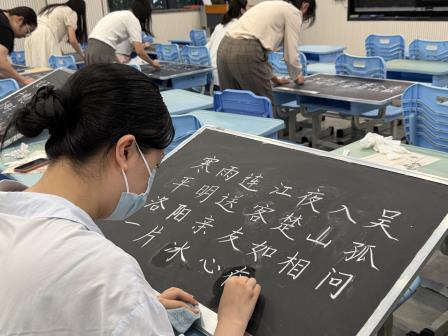 寒雨连江夜入吴
平明送客楚山孤
洛阳亲友如相问
一片冰心在